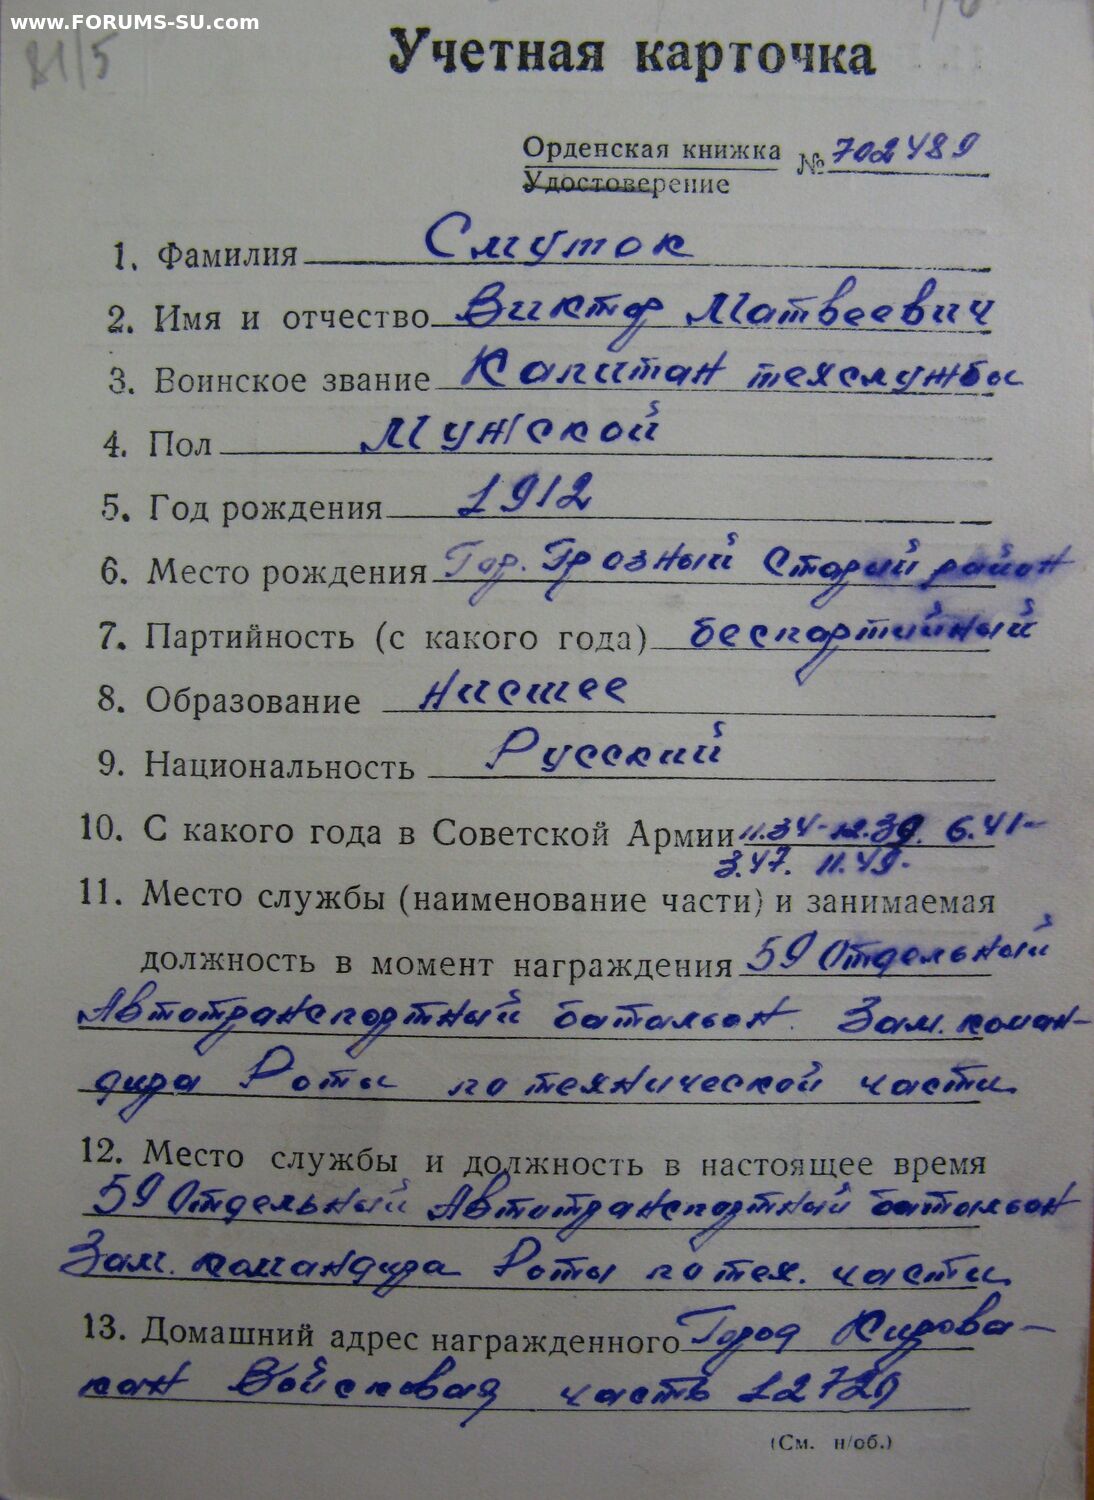 www.FORUMS-SU.com
81/5
Учетная карточка
Орденская книжка № 702489
Удостоверение
1. Фамилия Смуток
2. Имя и отчество Виктор Матвеевич
3. Воинское звание Капитан техслужбы
4. Пол Мужской
5. Год рождения 1912
6. Место рождения Гор. Грозный Старый район
7. Партийность (с какого года) беспартийный
8. Образование нисшее
9. Национальность Русский
10. С какого года в Советской Армии 11.34-12.39. 6.41-
3.47. 11.49-
11. Место службы (наименование части) и занимаемая
должность в момент награждения 59 Отдельный
Автотранспортный батальон. Зам. коман-
дира Роты по технической части
12. Место службы и должность в настоящее время
59 Отдельный Автотранспортный батальон
Зам. командира Роты по тех. части
13. Домашний адрес награжденного Город Кирова-
кан Войсковая часть 12729
(См. н/об.)